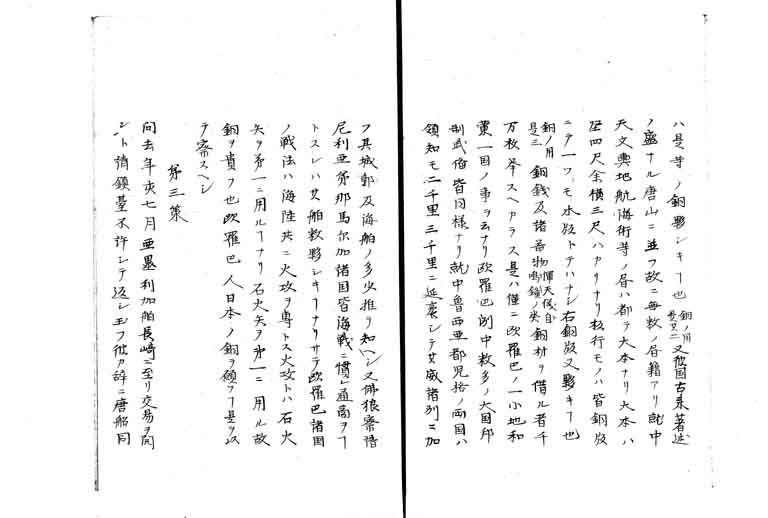 ハ是等ノ銅夥シキヿ也 銅ノ用是其二 又彼国古来著述
ノ盛ナル唐山ニ並フ故ニ無数ノ書籍アリ就中
天文輿地航海術等ノ書ハ都テ大本ナリ大本ハ
竪四尺余横三尺ハカリナリ板行モノハ皆銅版
ニテ一ツモ木版トテハナシ右銅版又夥キヿ也
銅ノ用是三 銅銭及諸器物 渾天儀自鳴鐘ノ類 銅材ヲ借ル者千
万枚挙スヘカラス是ハ僅ニ欧羅巴ノ一小地和
蘭一国ノ事ヲ云ナリ欧羅巴列中数多ノ大国邦
制武備皆同様ナリ就中魯西亜都児格ノ両国ハ
領知モ二千里三千里ニ延袤シテ其威諸列ニ加
フ其城郭及海舶ノ多少推テ知ヘシ又佛狼察諳
尼利亜第那馬尓加諸国皆海戦ニ慣レ通商ヲ丁
トスレハ其舶数夥シキヿナリサテ欧羅巴諸国
ノ戦法ハ海陸共ニ火攻ヲ専トス火攻トハ石火
矢ヲ第一ニ用ルヿナリ石火矢ヲ第一ニ用ル故
銅ヲ貴フ也欧羅巴人日本ノ銅ヲ願フ丁是ヲ以
テ察スヘシ
第三策
問去年亥七月亜墨利加舶長崎ニ至リ交易ヲ開
ント請鎮臺不許シテ返シ玉フ彼カ辞ニ唐船同